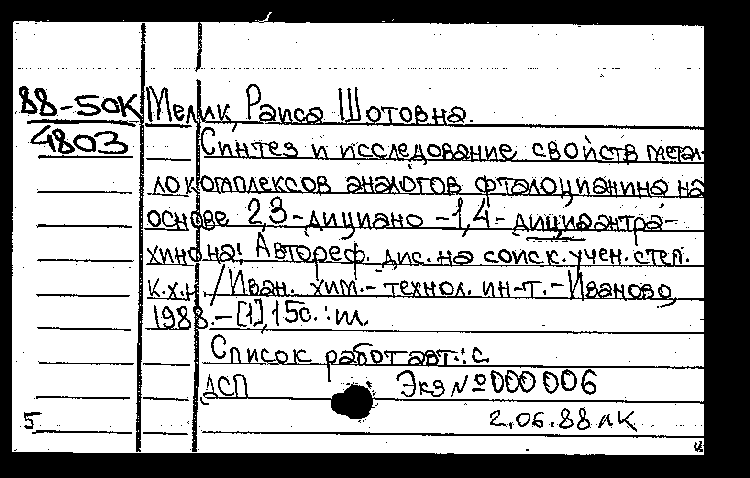 88-50К Мелик, Раиса Шотовна.
4803 Синтез и исследование свойств метал-
локомплексов аналогов фталоцианина на
основе 2,3-дициано-1,4-дициаантра-
хинона: Автореф. дис. на соиск. учен. степ.
к.х.н. / Иван. хим.-технол. ин-т.-Иваново,
1988.-[1],15с.:ил.
Список работ авт.: с.
ДСП Экз №000006
5 2.06.88 лк